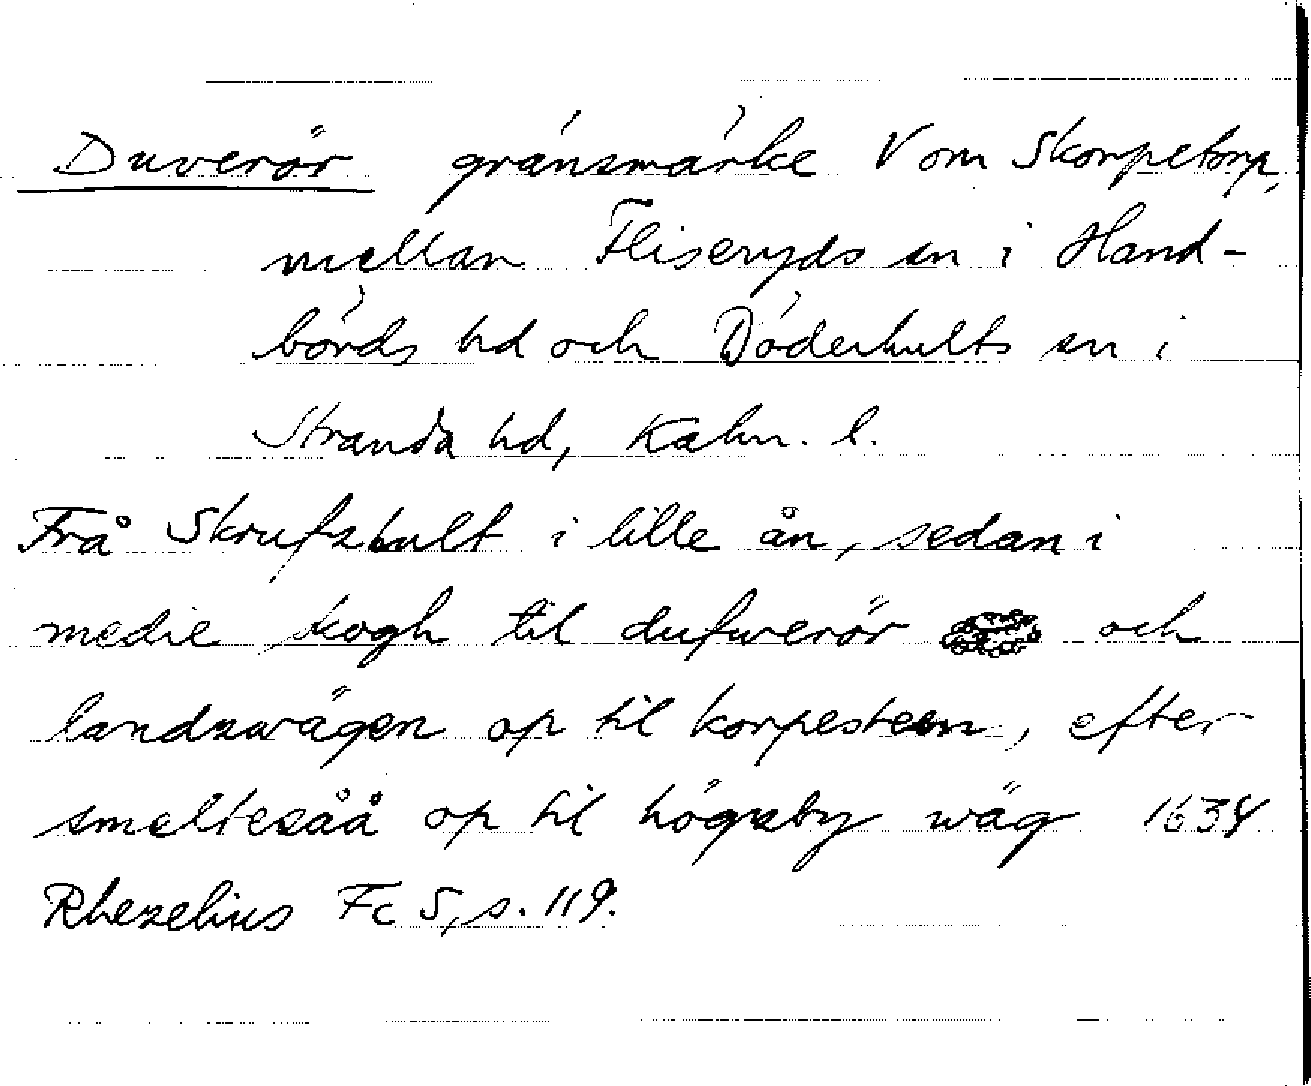 Duverör gränsmärke V om Skorpetorp,
mellan Fliseryds sn i Hand-
börds hd och Döderhults sn i
Stranda hd, Kalm. l.
Frå Skrufzhult i lille ån, sedan i
medie skogh til dufwerör och
landzwägen op til korpesteen, efter
smeltesåå op til högzby wäg 1634
Rhezelius Fc 5, s. 119.